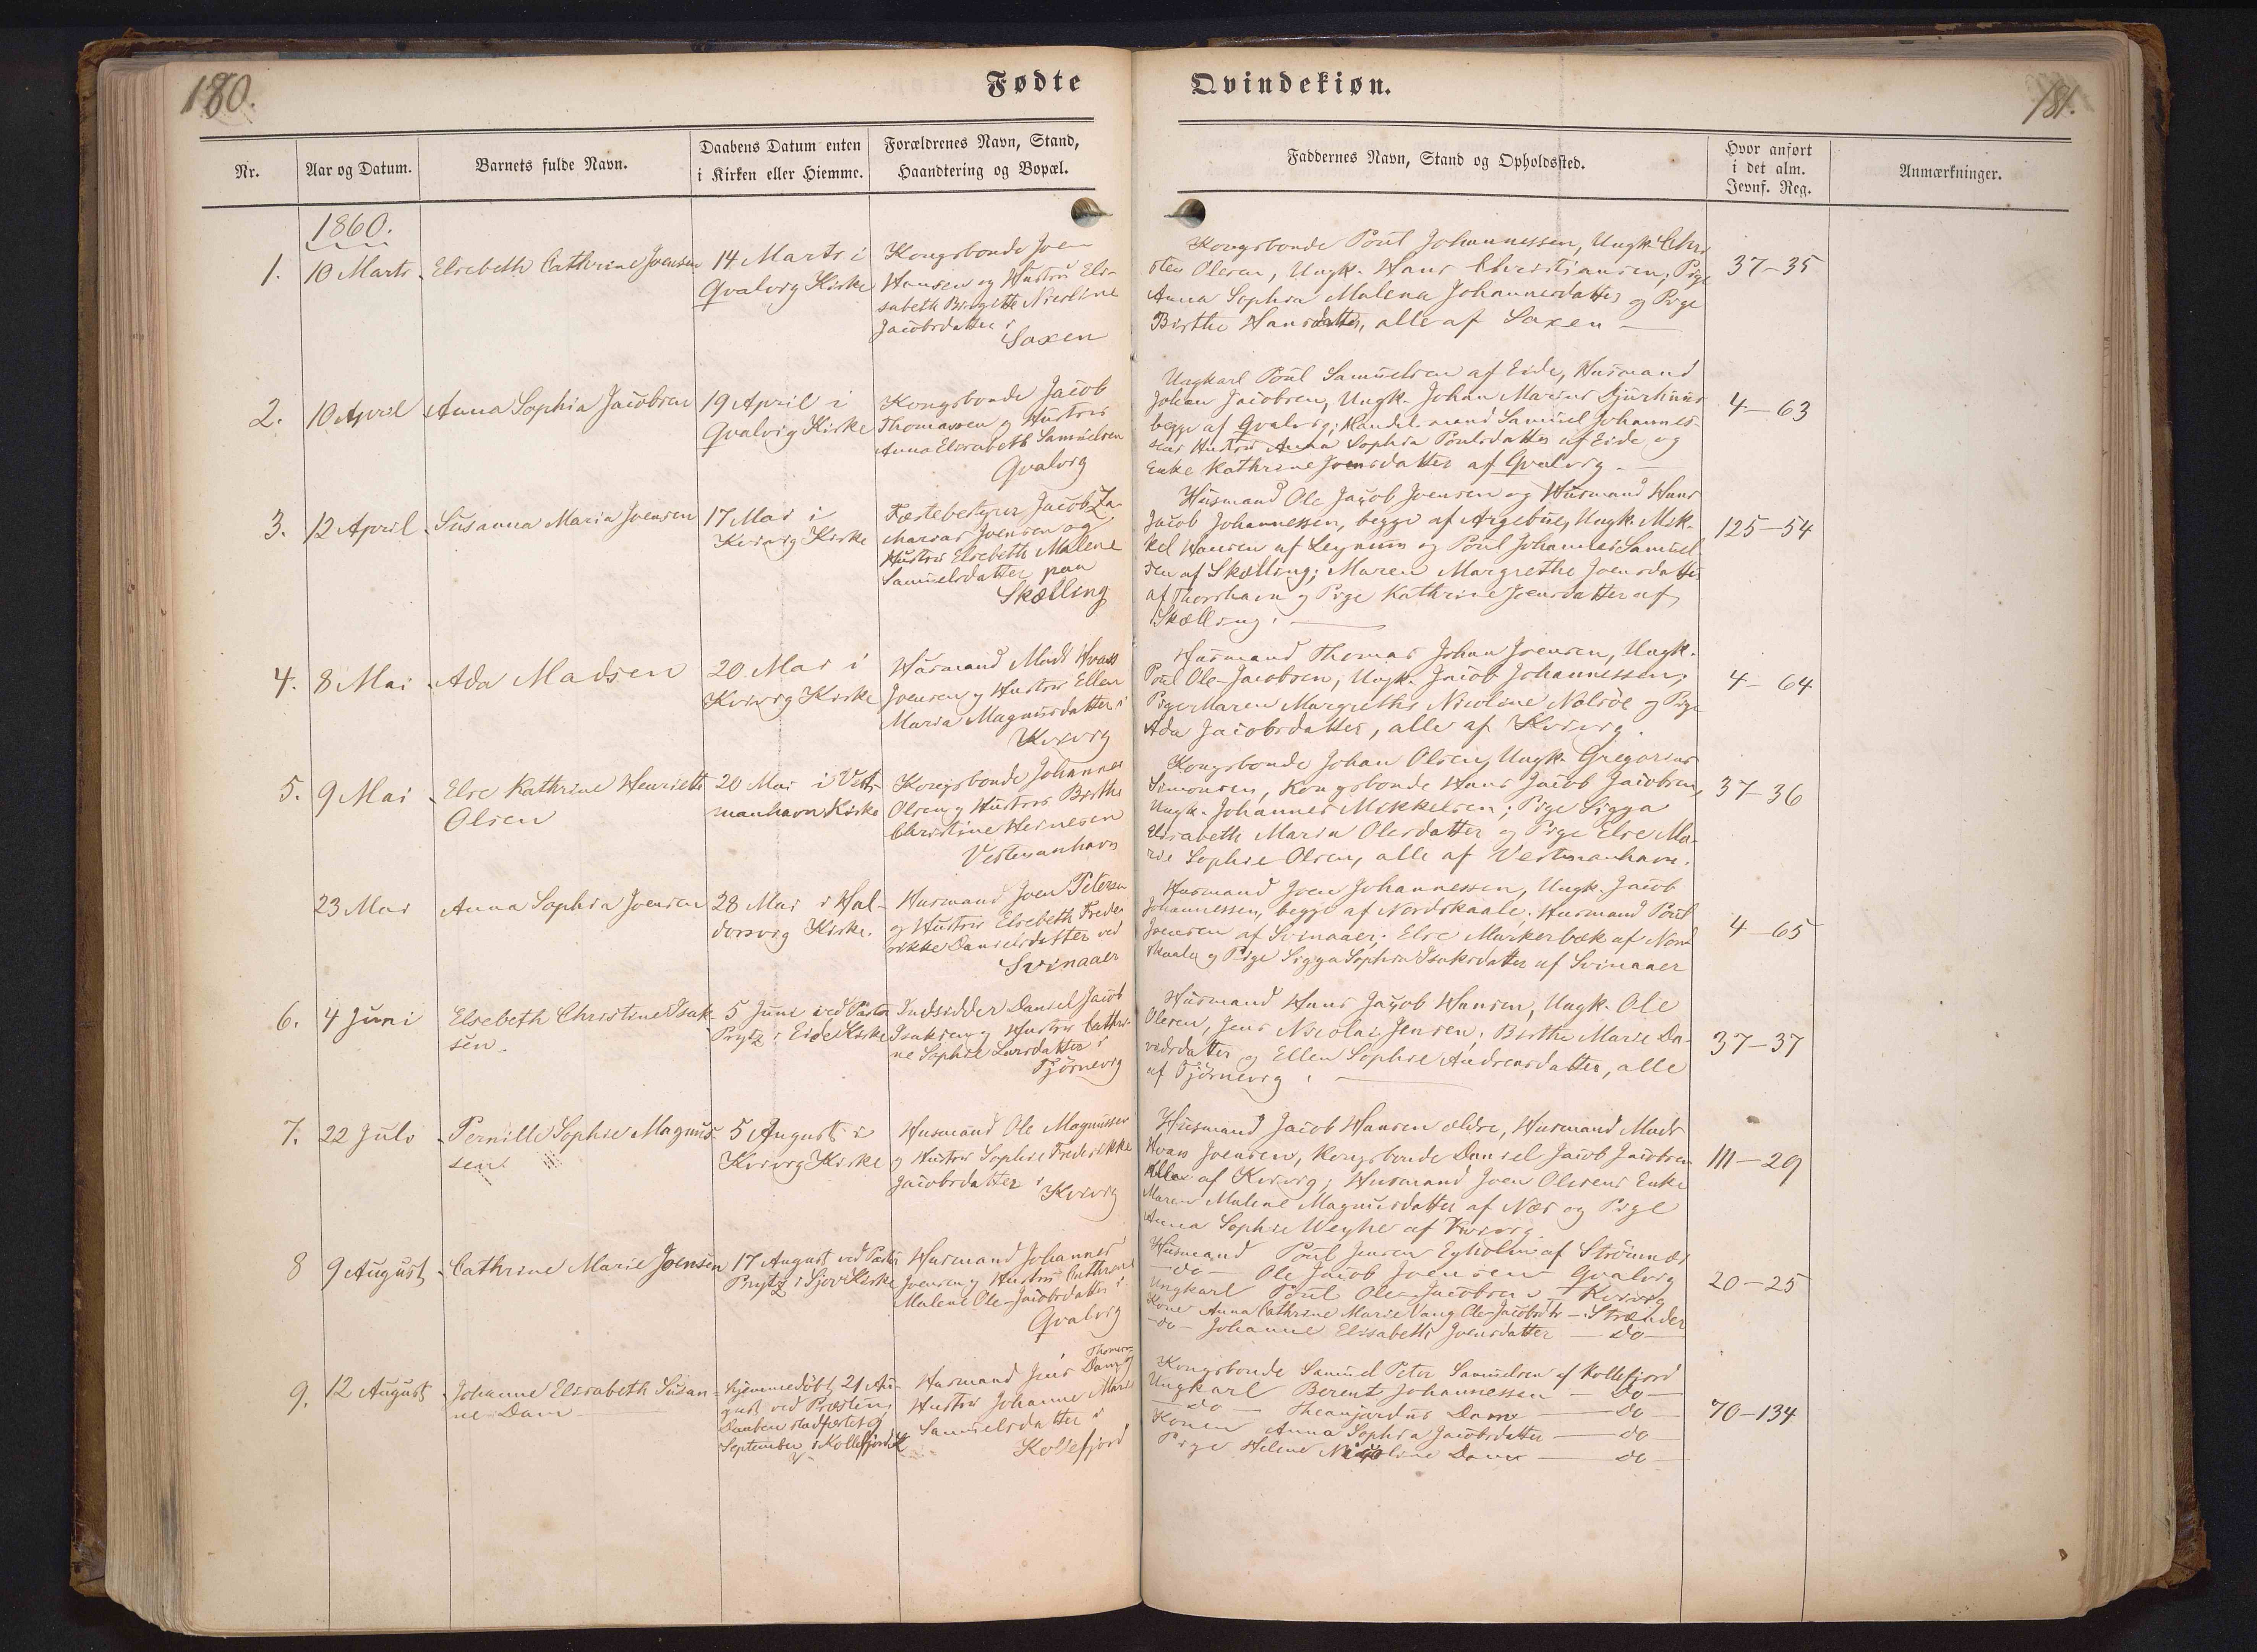 180.
Fødte
Nr.
Aar og Datum.
Barnets fulde Navn.
Daabens Datum enten
i Kirken eller Hiemme.
Forældrenes Navn, Stand,
Haandtering og Bopæl.
1860.
1.
10 Marts
Elsebeth Cathrine Joensen
14 Marts i
Qvalvig Kirke
Kongsbonde Joen
Hansen og Hustru Eli-
sabeth Birgitte Nicoline
Jacobsdatter i
Saxen
2.
10 April
Anna Sophia Jacobsen
19 April i
Qvalvig Kirke
Kongsbonde Jacob
Thomassen og Hustru
Anna Elisabeth Samuelsen
Qvalvig
3.
12 April
Susanna Maria Joensen
17 Mai i
Kvivig Kirke
Fæstebestyrer Jacob Za-
charias Joensen og
Hustru Elsebeth Malene
Samuelsdatter paa
Skælling
4.
8 Mai
Ada Madsen
20 Mai i
Kvivig Kirke
Husmand Mads Hvass
Joensen og Hustru Ellen
Maria Magnusdatter i
Kvivig
5.
9 Mai
Else Kathrine Henriette
Olsen
20 Mai i Vest-
manhavn Kirke
Kongsbonde Johannes
Olsen og Hustru Birthe
Christine Heinesen
Vestmanhavn
23 Mai
Anna Sophia Joensen
28 Mai i Hal-
dorsvig Kirke.
Husmand Joen Petersen
og Hustru Elsebeth Frede-
rikke Danielsdatter ved
Svinaaer
6.
4 Juni
Elsebeth Christine Isak-
sen.
5 Juni ved Pastor
Prytz i Eide Kirke
Indsidder Daniel Jacob
Isaksen og Hustru Cathri-
ne Sophie Larsdatter i
Tjörnevig
7.
22 Juli
Pernille Sophie Magnus-
sen.
5 August i
Kvivig Kirke
Husmand Ole Magnussen
og Hustru Sophie Frederikke
Jacobsdatter i
Kvivig
8
9 August
Cathrine Marie Joensen
17 August ved Pastor
Prytz i Sjov Kirke
Husmand Johannes
Joensen og Hustru Cathrine
Malene Ole-Jacobsdatter i
Qvalvig
9.
12 August
Johanne Elisabeth Susan-
ne Dam
hjemmedöbt 21 Au-
gust ved Præsten,
Daaben stadfæstet 9
September i Kollefjord K
Thomsen
Husmand Jens Dam og
Hustru Johanne Marie
Samuelsdatter i
Kollefjord
Qvindekiøn.
181.
Faddernes Navn, Stand og Opholdssted.
Hvor anført
i det alm.
Jevnf. Reg.
Anmærkninger.
Kongsbonde Poul Johannessen, Ungk. Chri
sten Olesen, Ungk. Hans Christiansen, Pige
Anna Sophia Malena Johannesdatter og Pige
Birthe Hansdatter, alle af Saxen
37-35
Ungkarl Poul Samuelsen af Eide, Husmand
Johan Jacobsen, Ungk. Johan Marius Djurhuus
begge af Qvalvig; Handelsmand Samuel Johannes-
sens Hustru Anna Sophia Poulsdatter af Eide og
Enke Kathrine Joensdatter af Qvalvig.
4-63
Husmand Ole Jacob Joensen og Husmand Hans
Jacob Johannessen, begge af Argeboe, Ungk. Mik-
kel Hansen af Leynum og Poul Johannes Samuel
sen af Skælling; Maren Margrethe Joensdatter
af Thorshavn og Pige Kathrine Joensdatter af
Skælling.
125-54
Husmand Thomas Johan Joensen, Ungk.
Poul Ole-Jacobsen, Ungk. Jacob Johannessen;
Pige Maren Margrethe Nicoline Nolsöe og Pige
Ada Jacobsdatter, alle af Kvivig.
4-64
Kongsbonde Johan Olsen, Ungk. Gregorius
Simonsen, Kongsbonde Hans Jacob Jacobsen,
Ungk. Johannes Mikkelsen; Pige Sigga
Elisabeth Maria Olesdatter og Pige Else Ma-
rie Sophie Olsen, alle af Vestmanhavn.
37-36
Husmand Joen Johannessen, Ungk. Jacob
Johannessen, begge af Nordskaale; Husmand Poul
Joensen af Svinaaer; Else Mørkerbæk af Nord
skaale og Pige Sigga Sophia Isaksdatter af Svinaaer
4-65
Husmand Hans Jacob Hansen, Ungk. Ole
Olesen, Jens Nicolai Jensen; Birthe Marie Da-
vidsdatter og Ellen Sophie Andreasdatter, alle
af Tjörnevig.
37-37
Husmand Jacob Hansen ældre, Husmand Mads
Hvass Joensen, Kongsbonde Daniel Jacob Jacobsen
Alle af Kvivig; Husmand Joen Olesens Enke
Maren Malene Magnusdatter af Næs og Pige
Anna Sophie Weyhe af Kvivig.
111-29
Husmand Poul Jensen Egholm af Strömnæs
-do- Ole Jacob Joensen - Qvalvig
Ungkarl Poul Ole-Jacobsen - Kvivig
Kone Anna Cathrine Marie Vang Ole-Jacobsdtr - Strænder
-do- Johanne Elisabeth Joensdatter - do -
20-25
Kongsbonde Samuel Peter Samuelsen af Kollefjord
Ungkarl Berent Johannessen - do -
- do - Theanjardus Dam - do
Konen Anna Sophia Jacobsdatter - do -
Pige Helene Nicoline Dam - do -
70-134